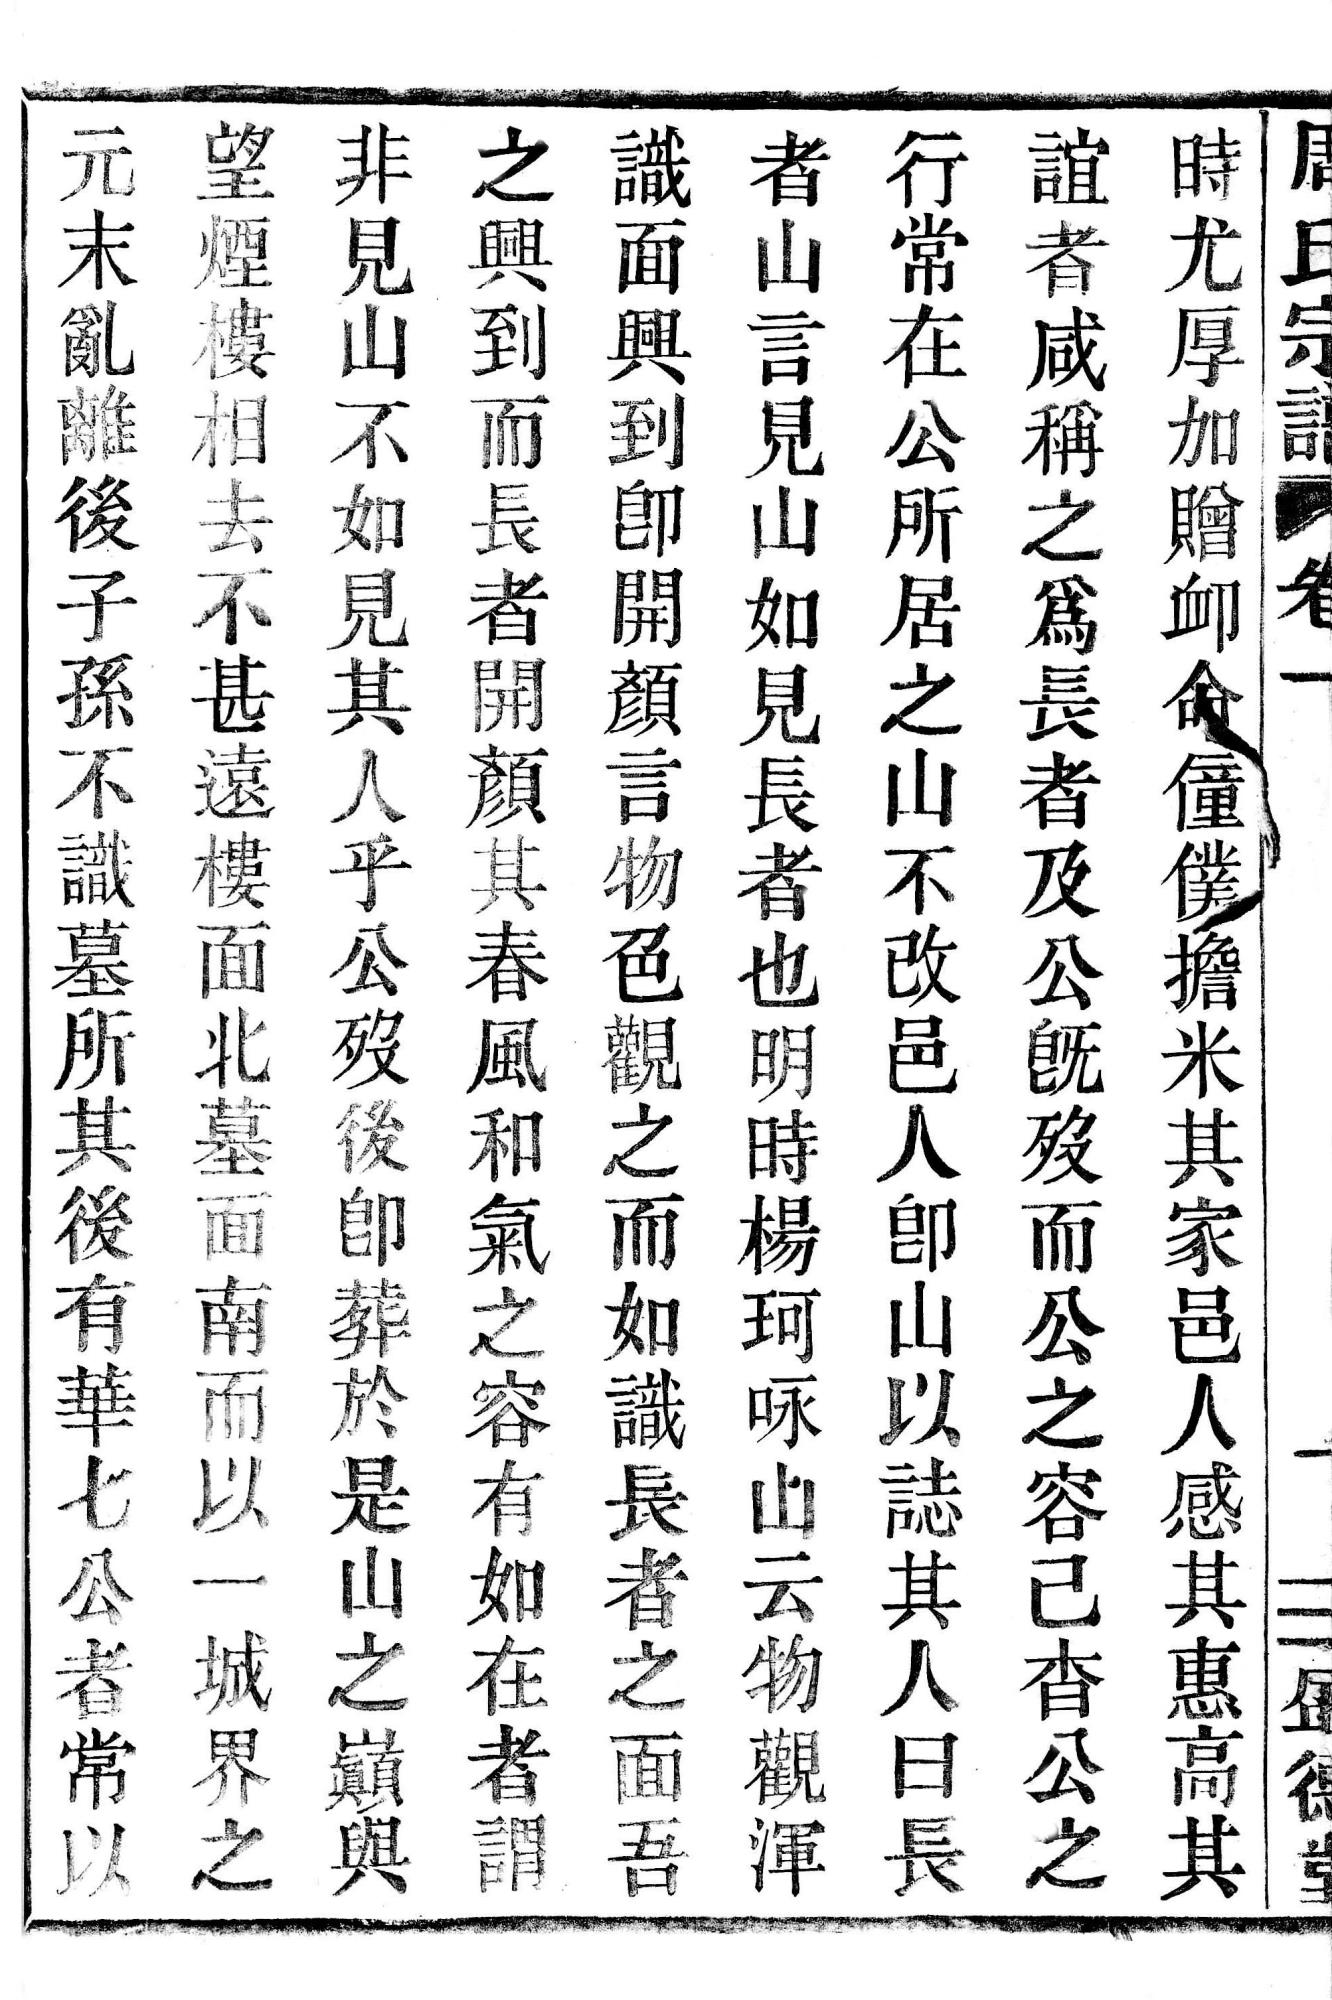 周氏宗譜 卷一 十二 盛德堂
時尤厚加贈卹命僮僕擔米其家邑人感其惠高其
誼者咸稱之爲長者及公旣歿而公之容已杳公之
行常在公所居之山不改邑人卽山以誌其人曰長
者山言見山如見長者也明時楊珂咏山云物觀渾
識面興到卽開顏言物色觀之而如識長者之面吾
之興到而長者開顏其春風和氣之容有如在者謂
非見山不如見其人乎公歿後卽葬於是山之巔與
望煙樓相去不甚遠樓面北墓面南而以一城界之
元末亂離後子孫不識墓所其後有華七公者常以